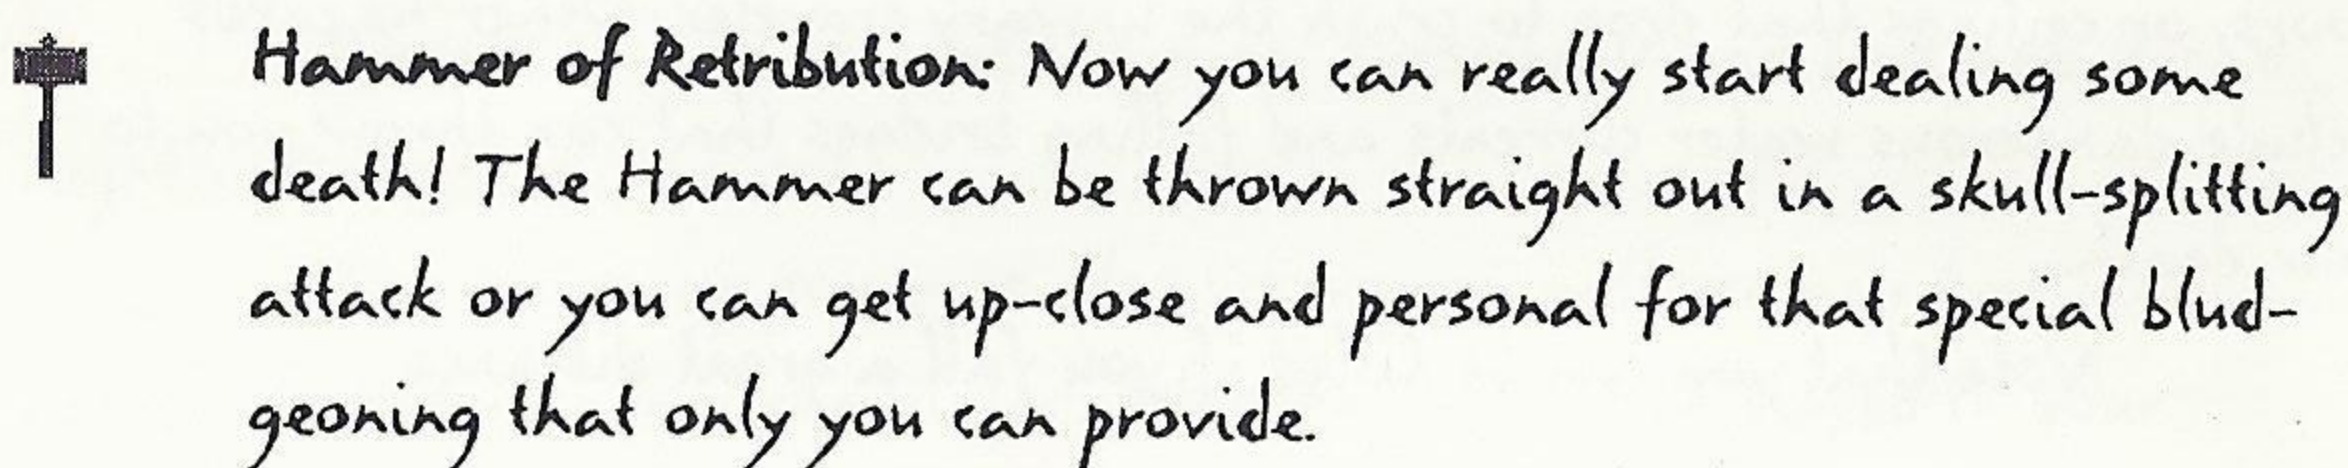 Hammer of Retribution: Now you can really start dealing some
death! The Hammer can be thrown straight out in a skull-splitting
attack or you can get up-close and personal for that special blud-
geoning that only you can provide.